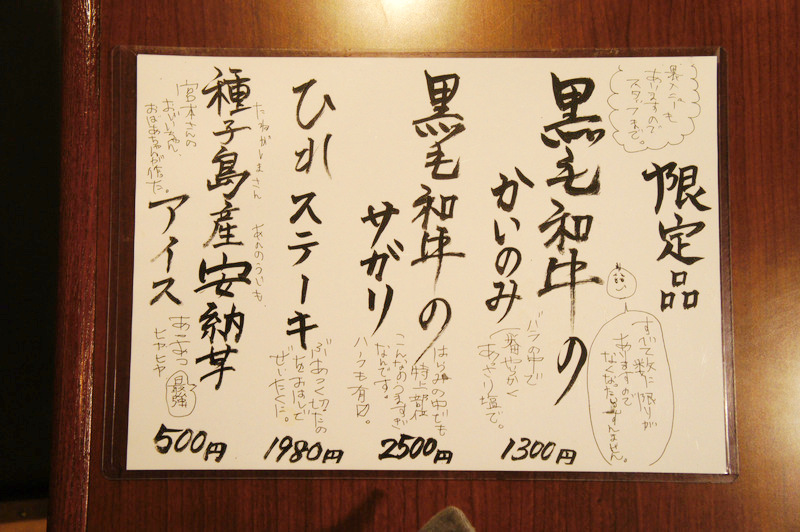 裏メニューも
ありますので
スタッフまで。
限定品
すべて数に限りが
ありますので
なくなったらすんません。
黒毛和牛の
かいのみ
バラの中で
一番やわらかく
あっさり塩で。
1300円
黒毛和牛の
サガリ
はらみの中でも
特上部位
こんなのうますぎ
なんです。
ハーフも有り。
2500円
ひれステーキ
ぶあつく切ったの
をおはしで
ぜいたくに。
1980円
たねがしまさん あんのういも
種子島産安納芋
アイス
宮本さんの
おじいちゃん、
おばあちゃんが作った。
あまあま
ヒヤヒヤ
最強
500円